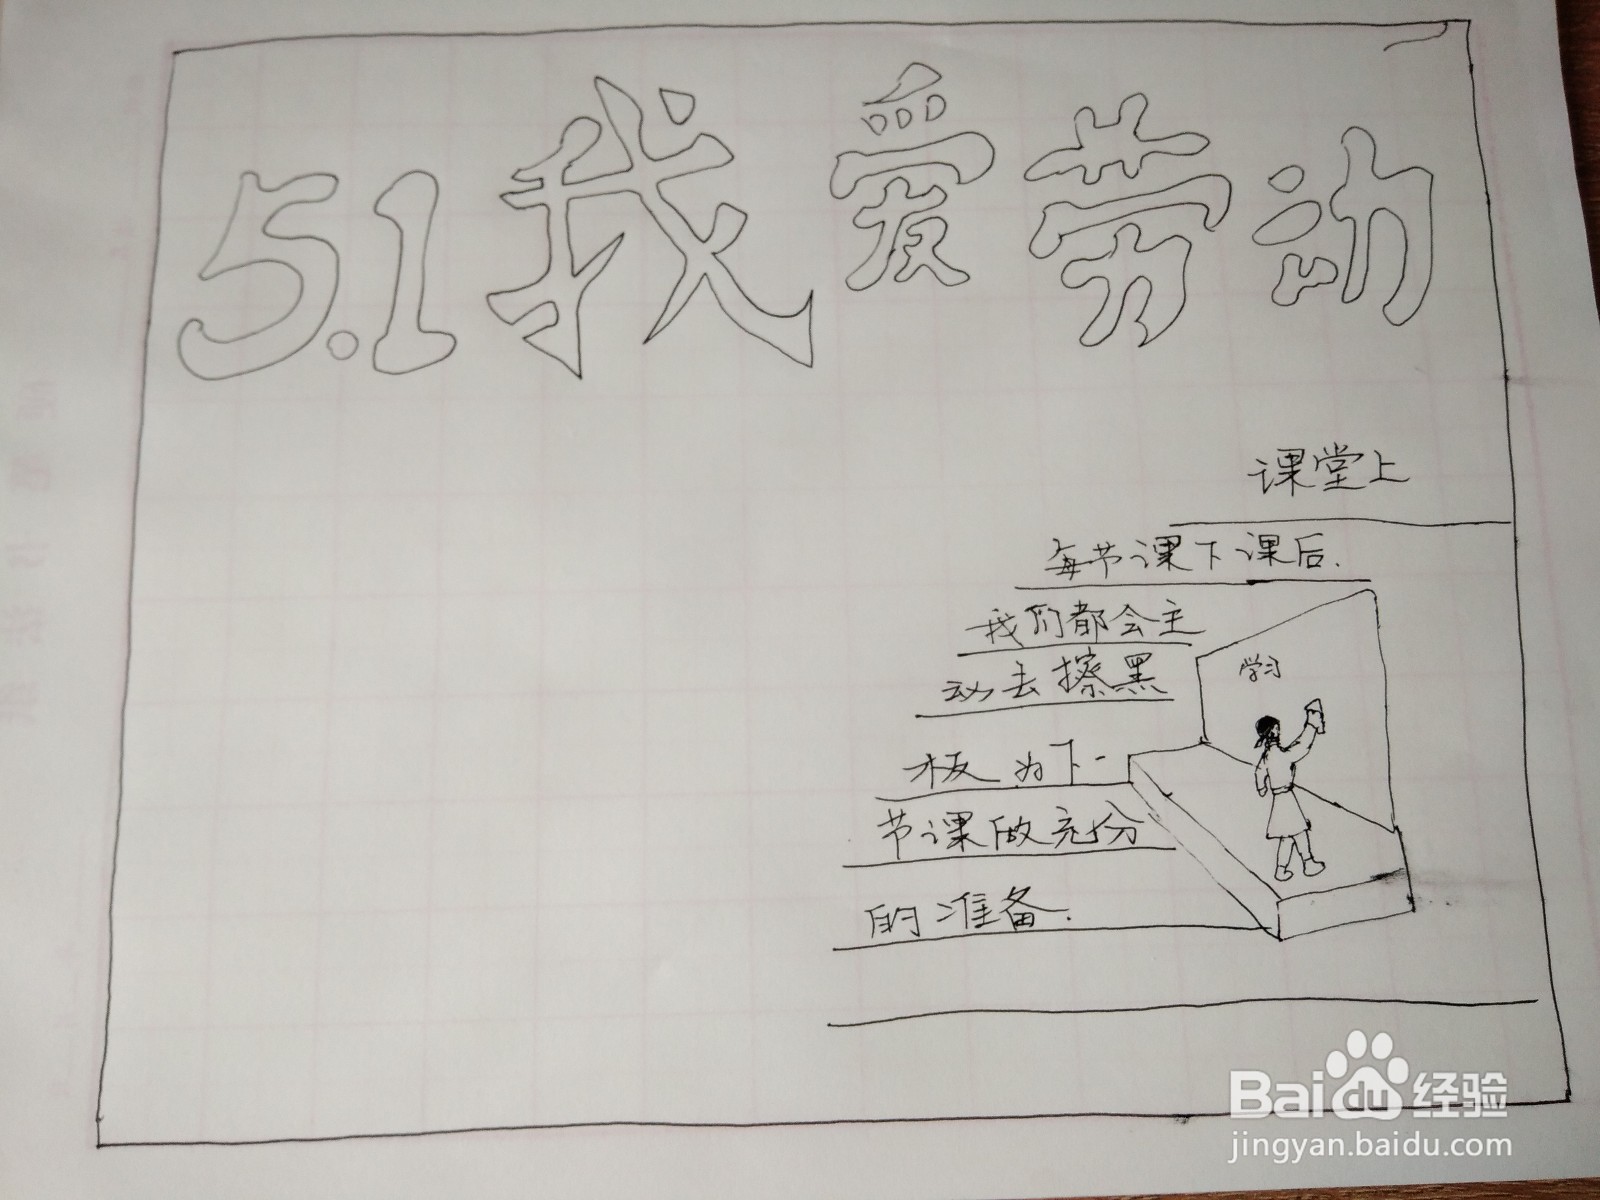 5.1我爱劳动
课堂上
每节课下课后.
我们都会主
动去擦黑
板 为下一
节课做充份
的准备.
学习
Baidu 经验
jingyan.baidu.com